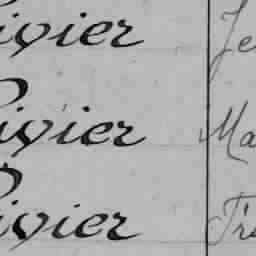 ivier Je
ivier Ma
ivier Tr